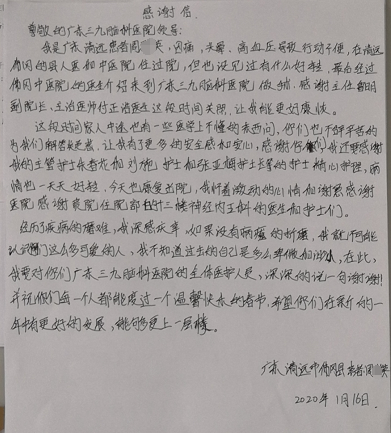 感谢信
尊敬的广东三九脑科医院领导:
我是广东清远患者周 英,因痛、头晕、高血压导致行动不便,在清远
佛冈的县人医和中医院住过院,但也没见过有什么好转,最后经过
佛冈中医院的医生介绍来到广东三九脑科医院做 感谢主任
副院长,主治医师付 清医生这段时间关照,让我能更好康收。
这段时间家人中途也有一些医学上不懂的东西问,你们也不辞辛苦的
与我们解答疑惑,让我有了更多的安全感和安心,感谢你们,我还要感谢
我的主管护士 和刘 护士和张亚 护士长等的护士精心护理,病
情也一天天好轻,今天也康复出院,我怀着激动的心情和谢意感谢
医院感谢贵院住院部 十三楼神经内五科的医生和护士们。
经历疾病的磨难,我深感庆幸,如果没有病痛的折磨,我就不可能
认识了这么多可爱的人,我不知道过去的自己是多么卑微和渺小,在此,
我要对你们广东三九脑科医院的全体医护人员,深深的说一句谢谢!
并祝你们每一个人都能度过一个温馨快乐的春节,希望你们在新的一
年中有更好的发展,能够更上一层楼。
广东清远市佛冈县患者:周 英
2020年1月16日.